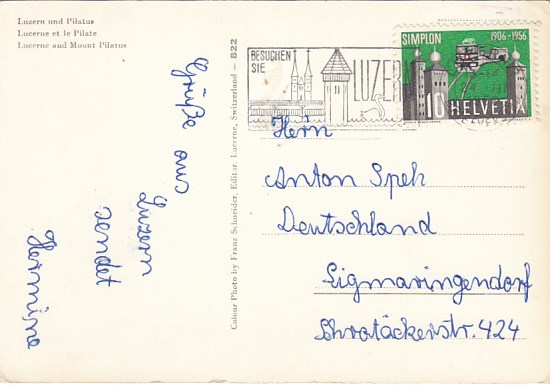 Luzern und Pilatus
Lucerne et le Pilate
Lucerne and Mount Pilatus
Grüße aus
Luzern
sendet
Hermine
Colour Photo by Franz Schneider, Editor, Lucerne, Switzerland — 822
BESUCHEN
SIE
LUZERN
SIMPLON 1906-1956
10 HELVETIA
Herrn
Anton Speh
Deutschland
Sigmaringendorf
Schratäckerstr. 424